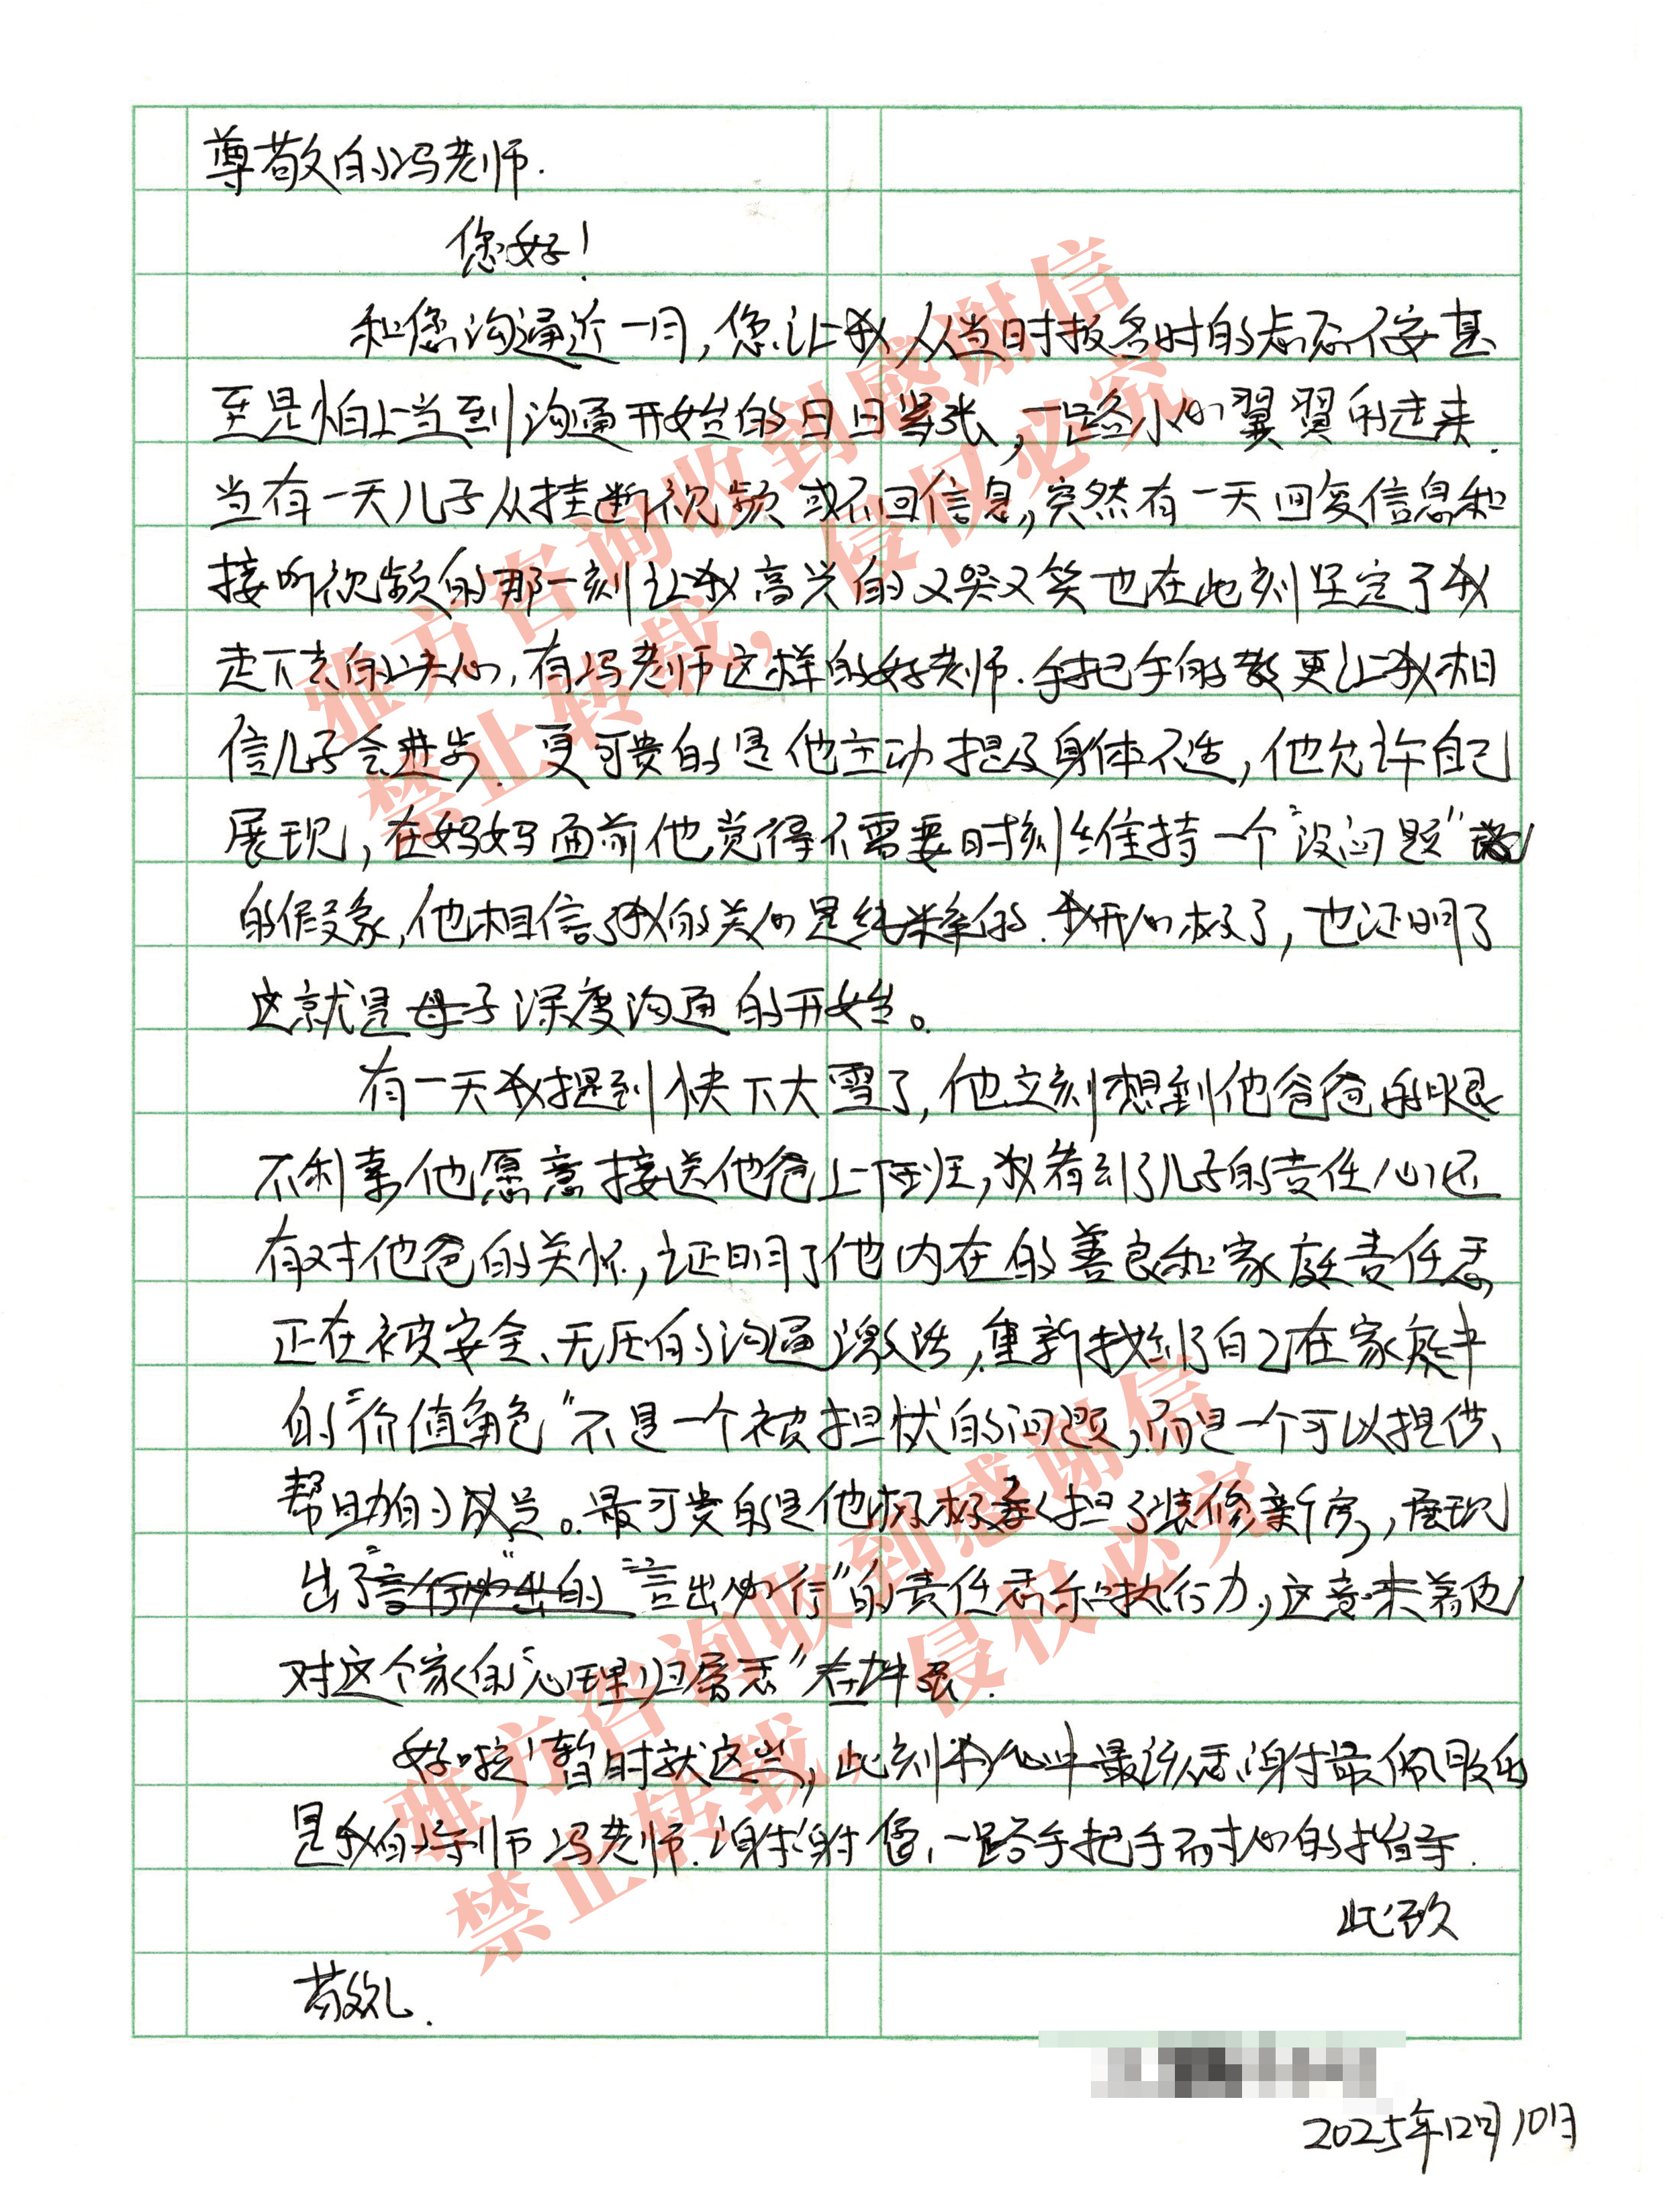 尊敬的冯老师.
您好!
和您沟通近一月,您让我从当时报名时的忐忑不安甚
至是怕上当到沟通开始的日日紧张,一路小心翼翼的走来.
当有一天儿子从挂断视频或不回信息,突然有一天回复信息和
接听视频的那一刻让我高兴的又哭又笑也在此刻坚定了我
走下去的决心,有冯老师这样的好老师.手把手的教更让我相
信儿子会进步.更可贵的是他主动提及身体不适,他允许自己
展现,在妈妈面前他觉得不需要时刻维持一个“没问题”
的假象,他相信了我的关心是纯粹的.我开心极了,也证明了
这就是母子深度沟通的开始。
有一天我提到快下大雪了,他立刻想到他爸爸的眼
不利索他愿意接送他爸上下班,我看到了儿子的责任心还
有对他爸的关怀,证明了他内在的善良和家庭责任感
正在被安全、无压的沟通激活,重新找到了自己在家庭中
的“价值角色”不是一个被担忧的问题,而是一个可以提供、
帮助的成员。最可贵的是他积极承担了装修新房,展现
出了“言出必行”的责任感和执行力,这意味着他
对这个家的“心理归属感”在增强.
好啦!暂时就这些,此刻我心中最该感谢最佩服的
是我的导师冯老师.谢谢您,一路手把手耐心的指导.
此致
敬礼.
2025年12月10日
雅方咨询收到感谢信
禁止转载,侵权必究
雅方咨询收到感谢信
禁止转载,侵权必究